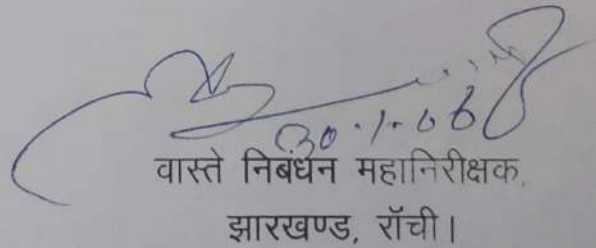 30.1.06
वास्ते निबंधन महानिरीक्षक,
झारखण्ड, रॉंची।